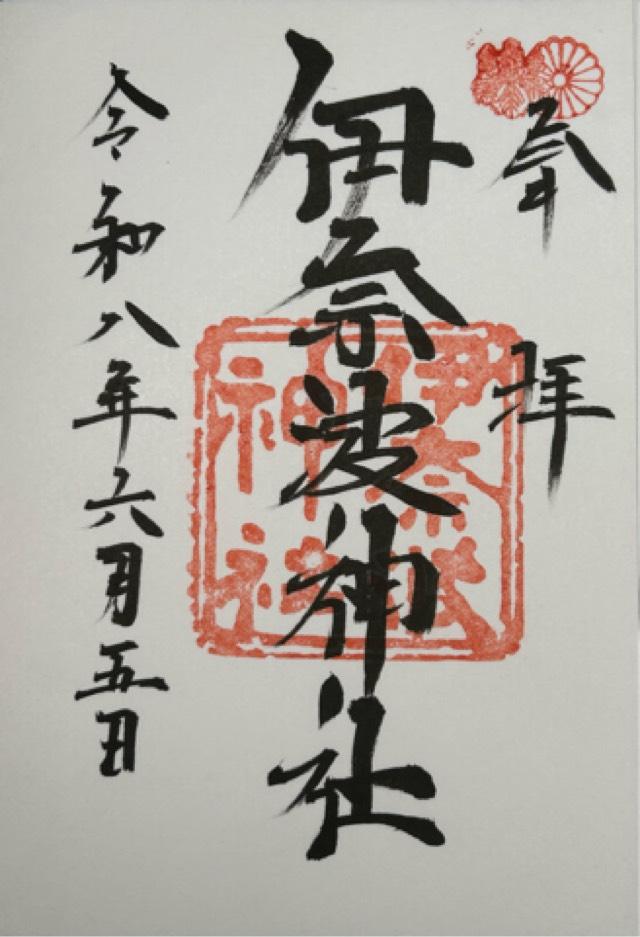 奉拝
伊奈波神社
伊奈波
神社
令和八年六月五日